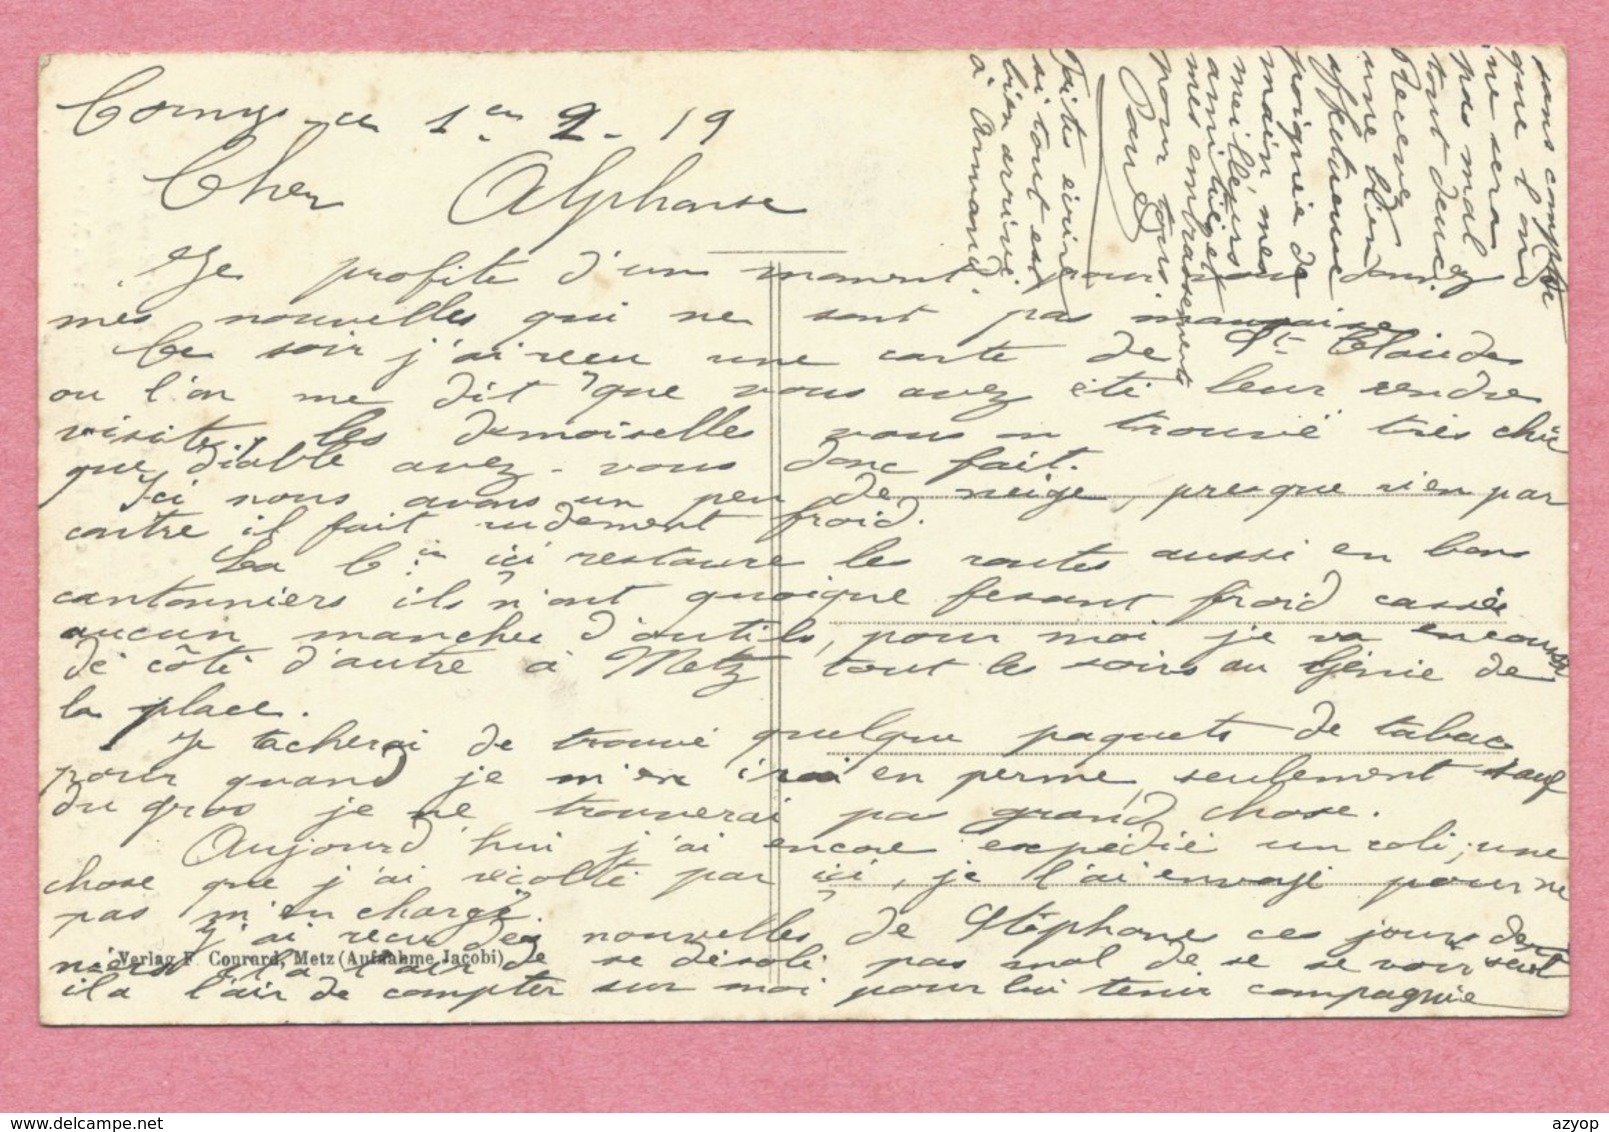 Corny ce 1er 2 - 19
Cher Alphonse
Je profite d'un moment pour vous donnez
mes nouvelles qui ne sont pas mauvaise
Ce soir j'ai recu une carte de St Claude
ou l'on me dit que vous avez été leur rendre
visite, les demoiselles vous on trouvé très chic
que diable avez-vous donc fait.
Ici nous avons un peu de neige, presque rien par
contre il fait rudement froid.
La Cie ici restaure les routes aussi en bons
cantonniers ils n'ont quoique fesant froid cassée
aucun manche d'outils, pour moi je va encourir
de côté d'autre à Metz tout les soirs au Génie de
la place.
Je tacherai de trouvé quelque paquets de tabac
pour quand je m'en irai en perme, seulement sauf
du gros je ne trouverai pas grand chose.
Aujourd'hui j'ai encore expédié un coli, une
chose que j'ai récolté par ici, je l'ai envoyé pour ne
pas m'en chargé.
J'ai recu des nouvelles de Stéphane ces jours der
niers il a l'air de se désolé pas mal de se voir seul
il a l'air de compter sur moi pour lui tenir compagnie
sans compter
que l'on
ne sera
pas mal
tout deux.
Recevez
une bien
affectueuse
poignée de
main mes
meilleurs
amitiées
mes embrassements
pour tous
Paul
Faites écrire
si tout est
bien arrivé
à Armand.
Verlag F. Conrard, Metz (Aufnahme Jacobi)
azyop